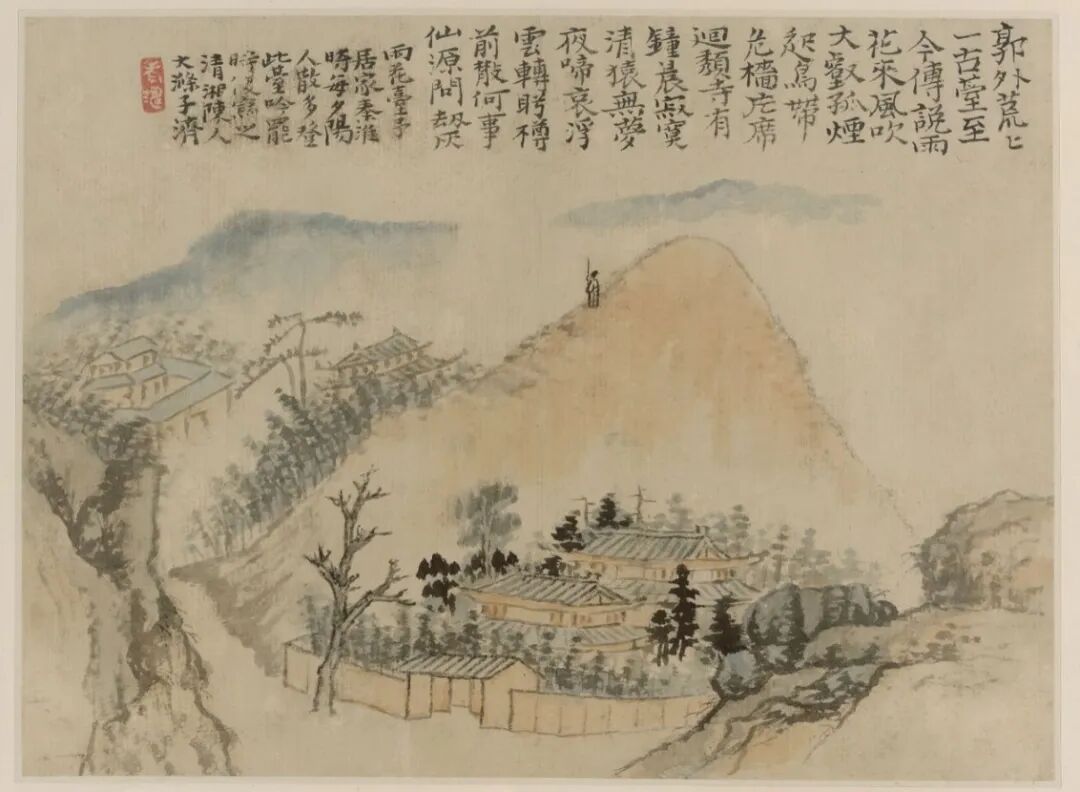 郭外荒〻
一古臺至
今傳說雨
花來風吹
大壑孤煙
起鳥帶
危檣片席
迴頹寺有
鐘晨寂寞
清猿無夢
夜啼哀浮
雲轉盻樽
前散何事
仙源問劫灰
雨花臺予
居家秦淮
時每夕陽
人散多登
此臺吟罷
時復寫之
清湘陳人
大滌子濟
老濤